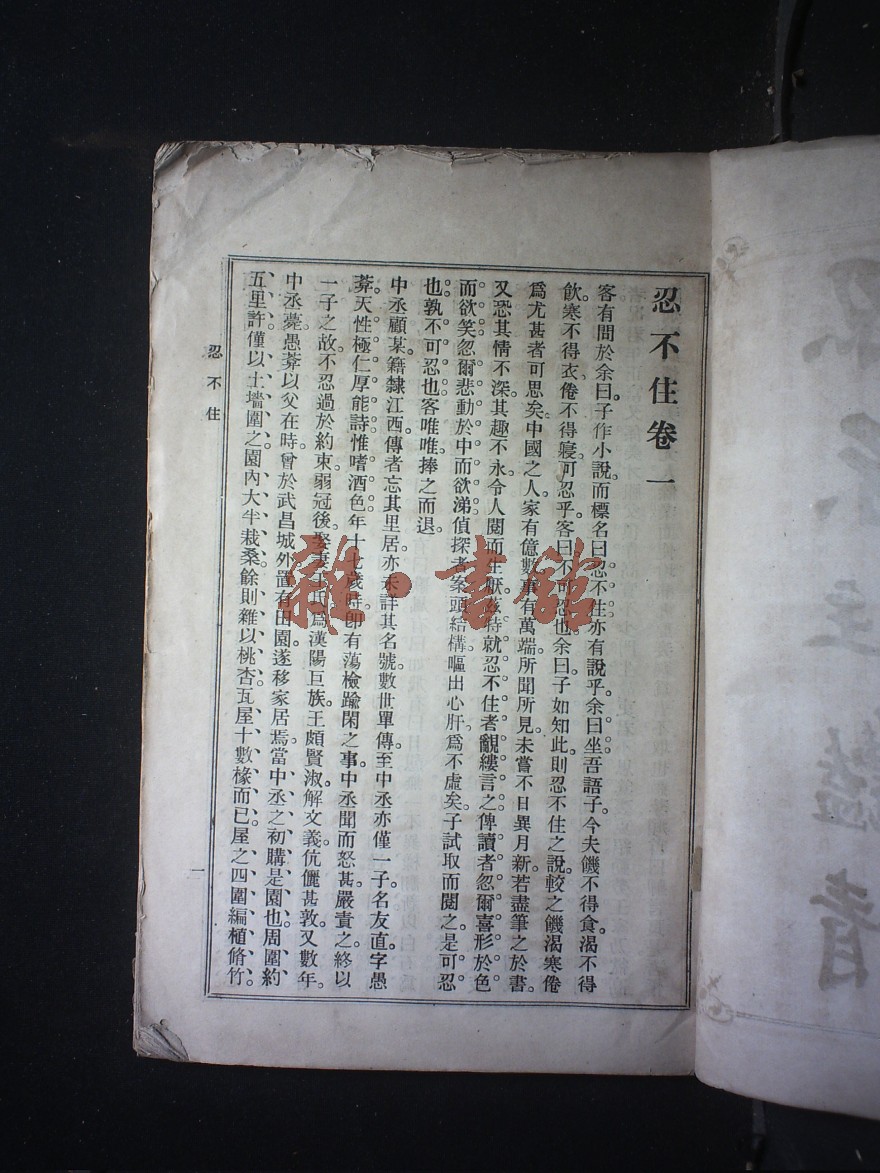 忍不住卷一
客有問於余曰子作小說而標名曰忍不住亦有說乎。余曰坐吾語子今夫饑不得食。渴不得
飲。寒不得衣。倦不得寢。可忍乎。客曰不可忍也。余曰子如知此則忍不住之說較之饑渴寒倦
爲尤甚者可思矣。中國之人家有億數。事有萬端所聞所見未嘗不日異月新。若盡筆之於書。
又恐其情不深其趣不永令人閱而生厭茲特就忍不住者覶縷言之。俾讀者忽爾喜形於色
而欲笑忽爾悲動於中而欲涕偵探者案頭結構嘔出心肝。爲不虛矣。子試取而閱之。是可忍
也孰不可忍也客唯唯捧之而退
中丞顧某。籍隸江西。傳者忘其里居亦未詳其名號數世單傳至中丞亦僅一子名友直字愚
莾。天性極仁厚能詩惟嗜酒色年十七歲時卽有蕩檢踰閑之事。中丞聞而怒甚。嚴責之。終以
一子之故。不忍過於約束。弱冠後。娶妻王氏爲漢陽巨族。王頗賢淑。解文義伉儷甚敦。又數年。
中丞薨。愚莾以父在時曾於武昌城外置有田園。遂移家居焉。當中丞之初購是園也。周圍約
五里許僅以土墻圍之園內大半栽桑餘則雜以桃杏。瓦屋十數椽而已屋之四圍編植脩竹。
忍不住
一
雜·書館